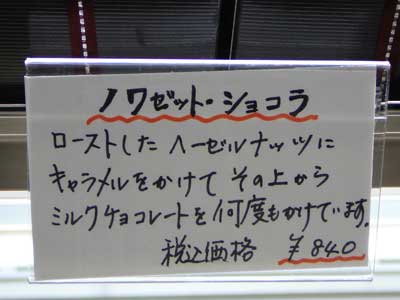 ノワゼット・ショコラ
ローストしたヘーゼルナッツに
キャラメルをかけて その上から
ミルクチョコレートを何度もかけています。
税込価格 ¥840